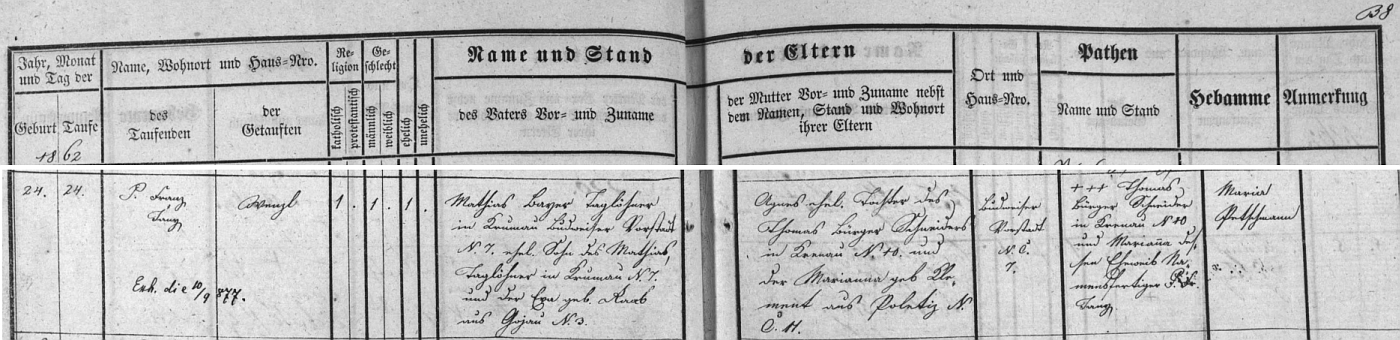 38
Jahr, Monat und Tag der
Name, Wohnort und Haus=Nro.
Religion
Geschlecht
Name und Stand
der Eltern
Ort und Haus=Nro.
Pathen
Hebamme
Anmerkung
Geburt
Taufe
des Taufenden
der Getauften
katholisch
protestantisch
männlich
weiblich
ehelich
unehelich
des Vaters Vor= und Zuname
der Mutter Vor= und Zuname nebst
dem Namen, Stand und Wohnort
ihrer Eltern
Name und Stand
1862
24.
24.
P. Franz
Tanz
Wenzl
1 . 1 . 1 .
Mathias Bayer Taglöhner
in Krumau Budweiser Vorstadt
N. 7. ehel. Sohn des Mathias,
Taglöhner in Krumau N. 7.
und der Eva geb. Raab
aus Gojau N. 3.
Agnes ehel. Tochter des
Thomas Bürger Schneiders
in Krenau N. 40. und
der Marianna geb. Kle-
ment aus Poletiz N.
C. 11.
Budweiser
Vorstadt
N. C.
7.
+++ Thomas
Bürger Schneider
in Krenau N. 40
und Marianna des-
sen Eheweib Na-
mensfertiger P. Fr.
Tanz
Maria
Petschmann
Erh. die 10/9 877.